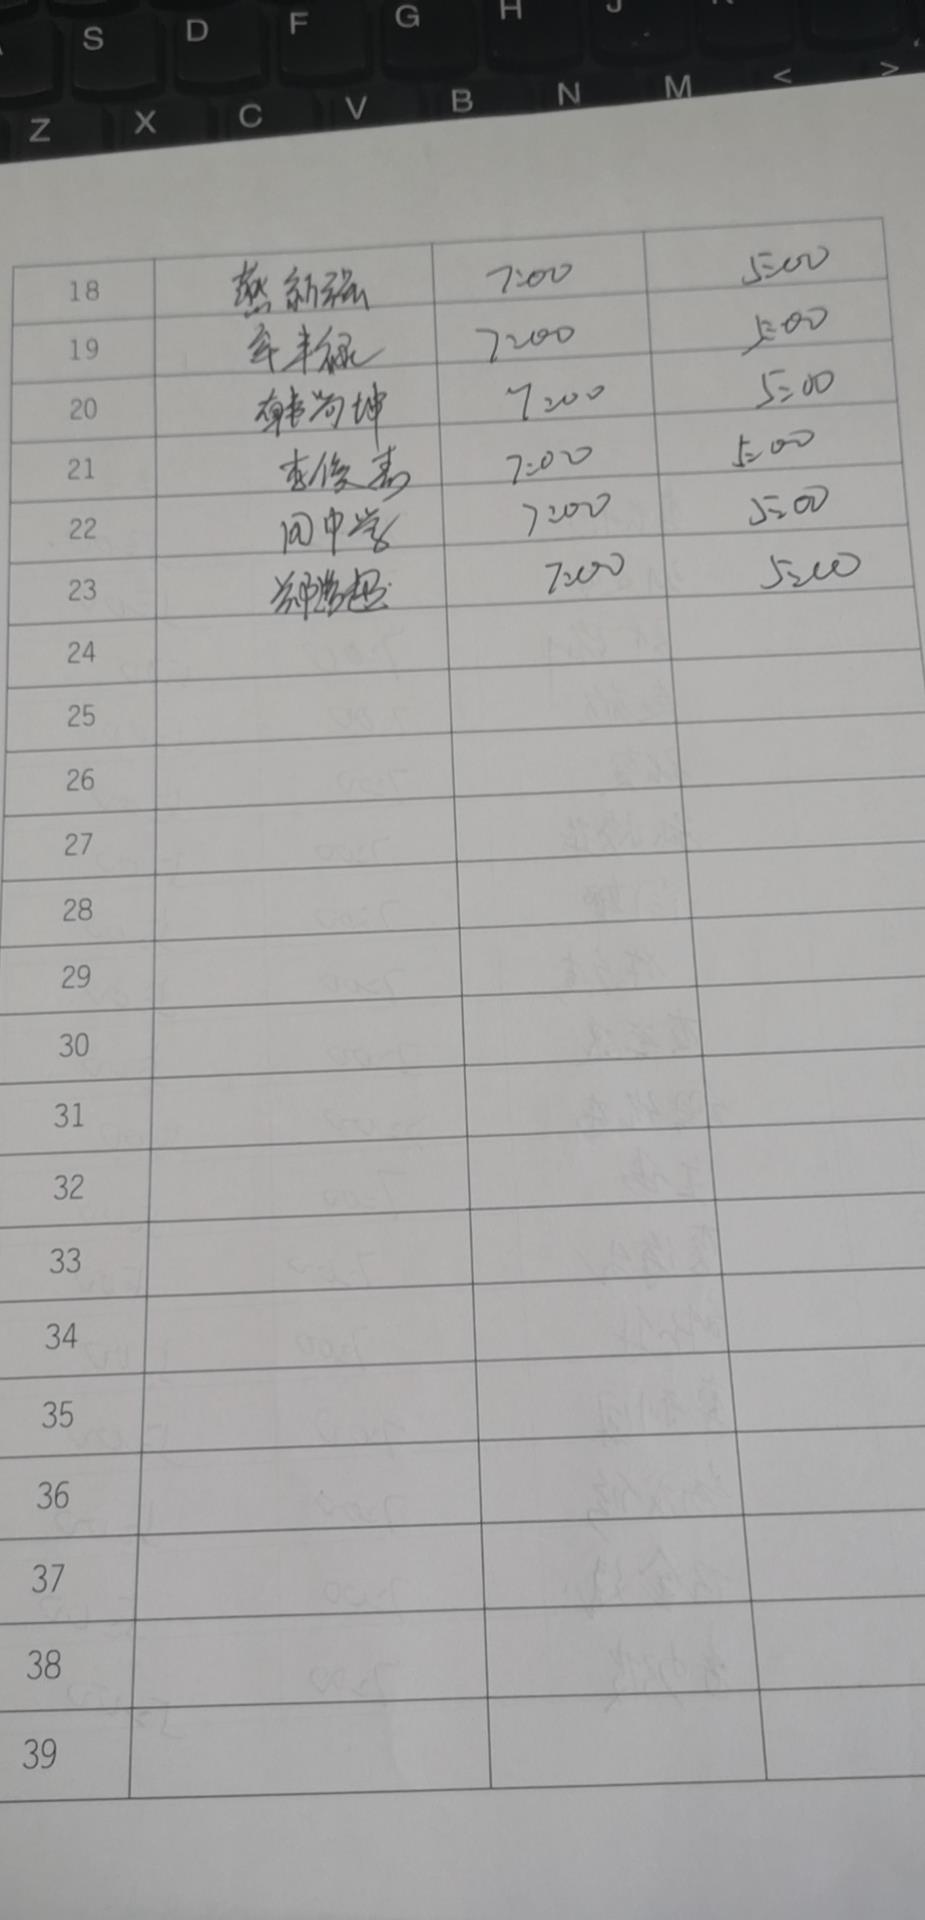 S D F G H J K
Z X C V B N M < >
18 燕新强 7:00 5:00
19 年丰禄 7:00 5:00
20 韩尚坤 7:00 5:00
21 李俊青 7:00 5:00
22 田中学 7:00 5:00
23 7:00 5:00
24
25
26
27
28
29
30
31
32
33
34
35
36
37
38
39